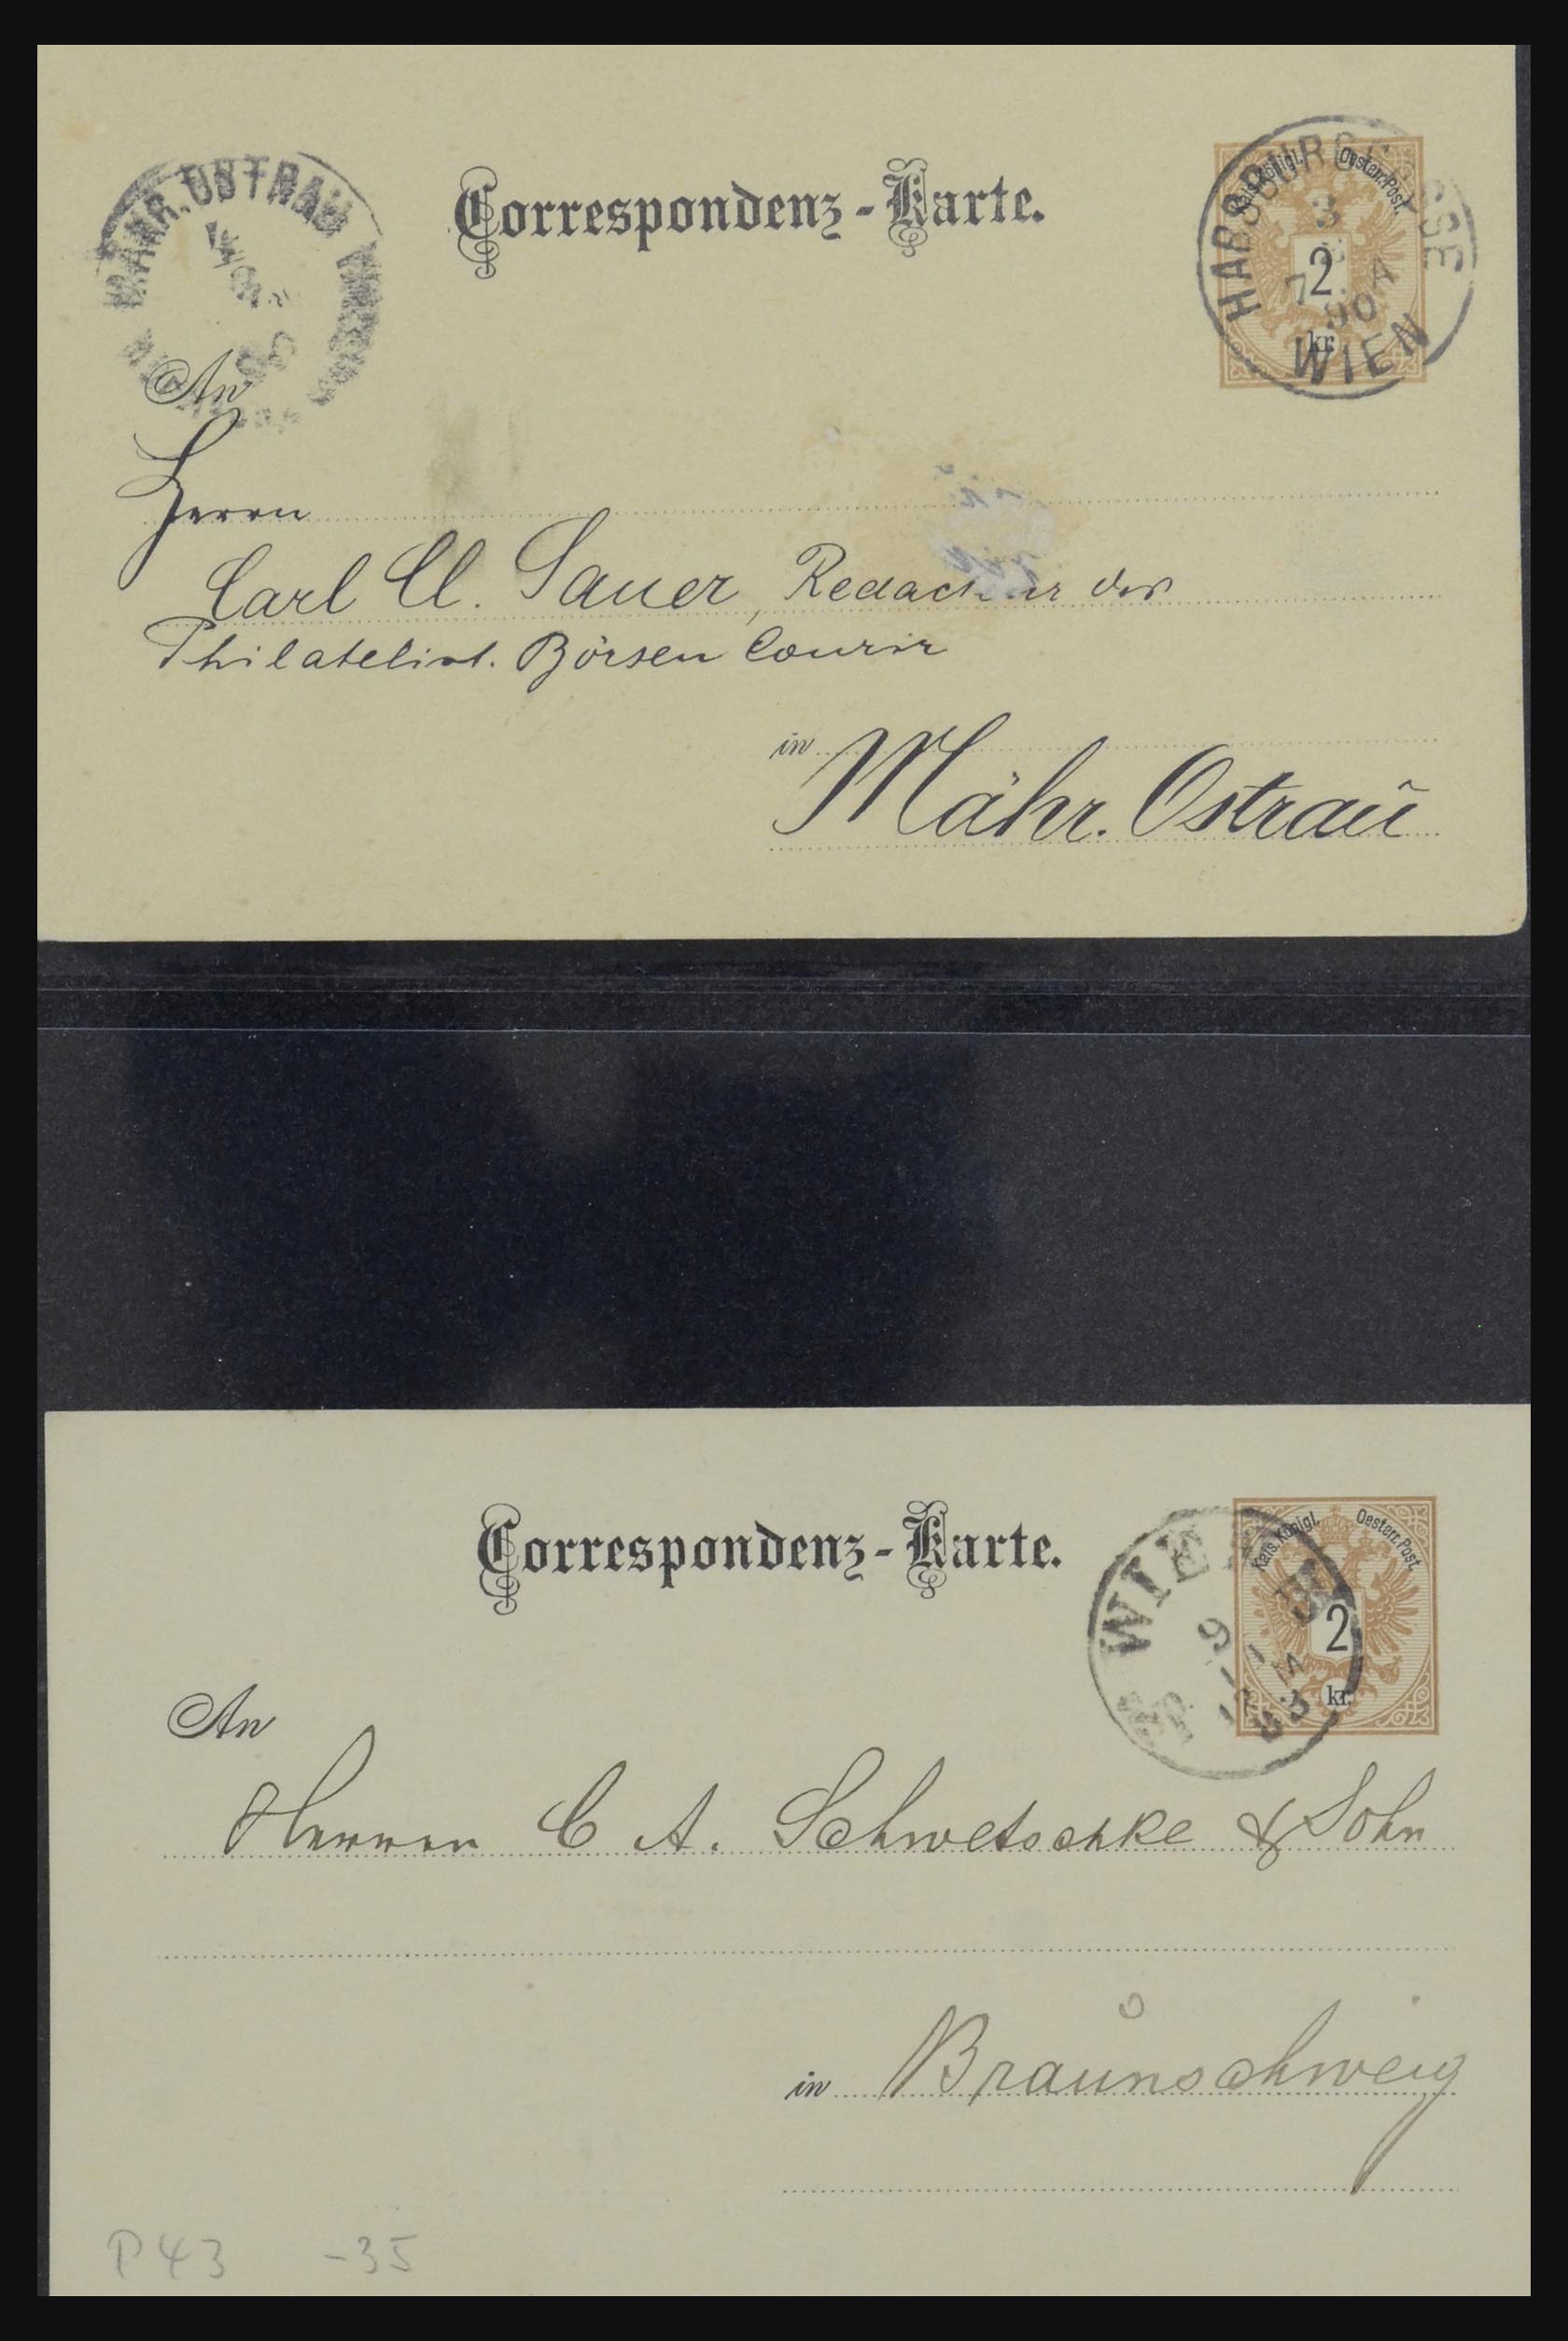 Correspondenz-Karte.
MÄHR. OSTRAU
Kais. Königl. Oesterr. Post.
HABSBURG
3
7 90 A
WIEN
2
kr.
An
Herrn
Carl Cl. Sauer, Redacteur des
Philatelist. Börsen Courir
in Mähr. Ostraŭ
Correspondenz-Karte.
Kais. Königl. Oesterr. Post.
WIEN
9
83
2
kr.
An
Herren C A. Schwetschke & Sohn
in Braunschweig
P 43 -35